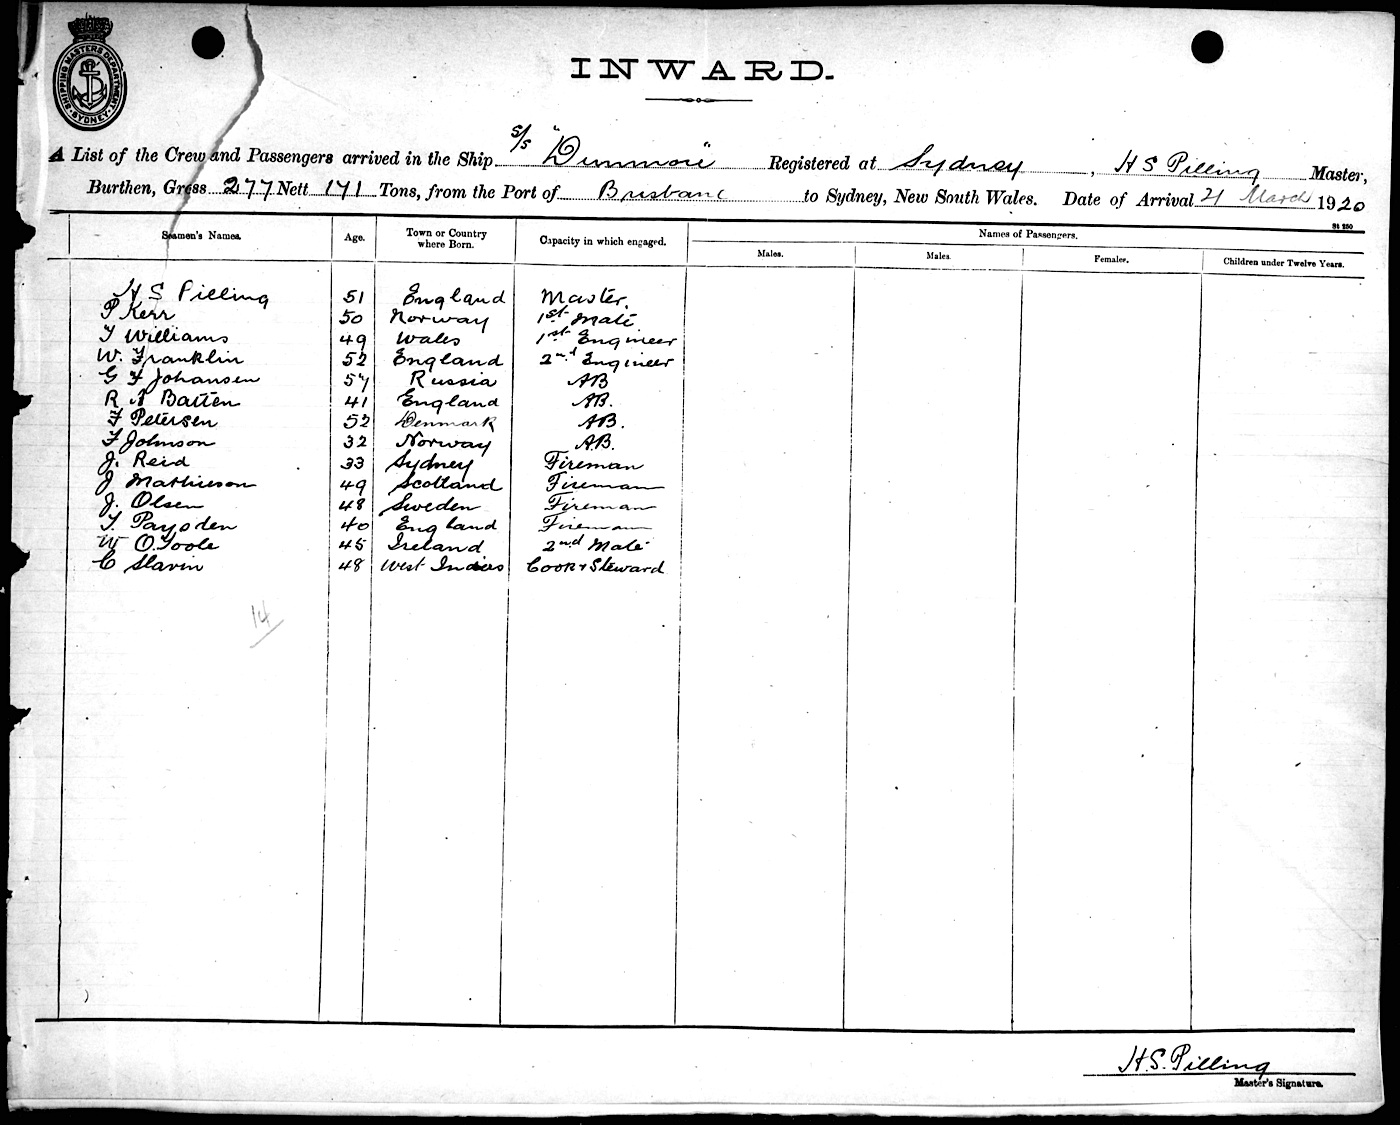 SHIPPING MASTERS DEPARTMENT SYDNEY
INWARD.
A List of the Crew and Passengers arrived in the Ship s/s "Dunmore" Registered at Sydney, H S Pilling Master,
Burthen, Gross 277 Nett 171 Tons, from the Port of Brisbane to Sydney, New South Wales. Date of Arrival 21 March 1920
St 250
Seamen's Names. Age. Town or Country where Born. Capacity in which engaged. Names of Passengers.
Males. Males. Females. Children under Twelve Years.
H S Pilling 51 England Master.
P Kerr 50 Norway 1st Mate
T Williams 49 Wales 1st Engineer
W. Franklin 52 England 2nd Engineer
G F Johansen 57 Russia AB
R A Batten 41 England AB.
F Petersen 52 Denmark AB.
F Johnson 32 Norway A.B.
J. Reid 33 Sydney Fireman
J Mathieson 49 Scotland Fireman
J. Olsen 48 Sweden Fireman
T. Paysden 40 England Fireman
W O.Toole 45 Ireland 2nd Mate
C Slavin 48 West Indies Cook & Steward
14
H.S. Pilling
Master's Signature.